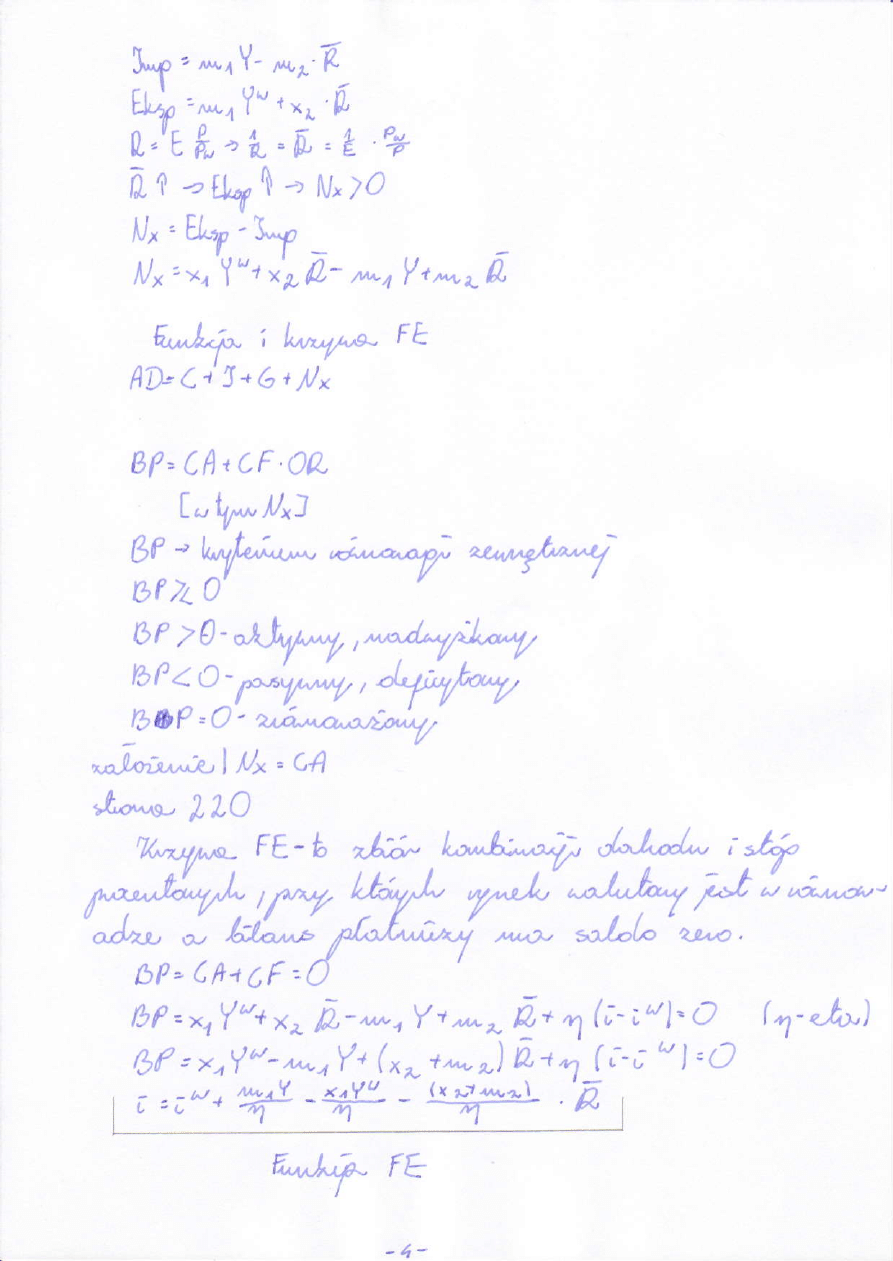 Imp = m₁Y - m₂ · R̄
Eksp = m₁Y^w + x₂ · R̄
R = E P/Pw → 1/R = R̄ = 1/E · Pw/P
R̄ ↑ → Eksp ↑ → Nx > 0
Nx = Eksp - Imp
Nx = x₁Y^w + x₂ R̄ - m₁Y + m₂ R̄
Funkcja i krzywa FE
AD = C + I + G + Nx
BP = CA + CF · OR
[w tym Nx]
BP → kryterium równowagi zewnętrznej
BP ⋛ 0
BP > 0 - aktywny, nadwyżkowy
BP < 0 - pasywny, deficytowy
BP = 0 - zrównoważony
założenie | Nx = CA
strona 220
Krzywa FE - to zbiór kombinacji dochodu i stóp
procentowych, przy których rynek walutowy jest w równow-
adze a bilans płatniczy ma saldo zero.
BP = CA + CF = 0
BP = x₁Y^w + x₂ R̄ - m₁Y + m₂ R̄ + η (i - i^w) = 0 (η - eta)
BP = x₁Y^w - m₁Y + (x₂ + m₂) R̄ + η (i - i^w) = 0
i = i^w + m₁Y/η - x₁Y^w/η - (x₂ + m₂)/η · R̄
Funkcja FE
- 4 -